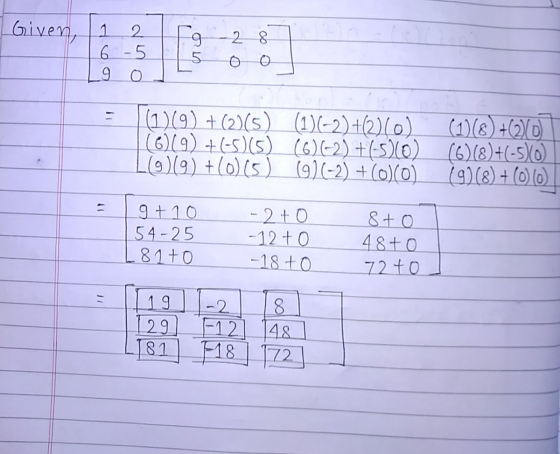 Given, [1 2] [9 -2 8]
[6 -5] [5 0 0]
[9 0]
= [(1)(9) + (2)(5) (1)(-2)+(2)(0) (1)(8)+(2)(0)]
[(6)(9) + (-5)(5) (6)(-2) + (-5)(0) (6)(8)+(-5)(0)]
[(9)(9) + (0)(5) (9)(-2) + (0)(0) (9)(8) + (0)(0)]
= [9+10 -2+0 8+0]
[54-25 -12+0 48+0]
[81+0 -18+0 72+0]
= [19 -2 8]
[29 -12 48]
[81 -18 72]